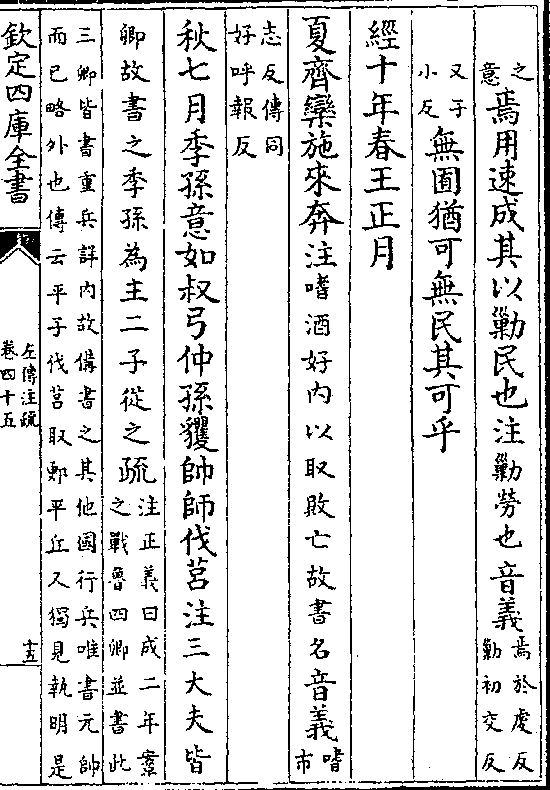 之意焉用速成其以勦民也注勦勞也音義焉於處反勦初交反
又子小反無囿猶可無民其可乎
經十年春王正月
夏齊欒施來奔注嗜酒好内以取敗亡故書名音義嗜市
志反傳同好呼報反
秋七月季孫意如叔弓仲孫貜帥師伐莒注三大夫皆
卿故書之季孫為主二子從之疏注正義曰成二年鞌之戰魯四卿並書此
三卿皆書重兵詳内故備書之其他國行兵唯書元帥
而已略外也傳云平子伐莒取郠平丘又獨見執明是
欽定四庫全書
左傳注疏
卷四十五
十五